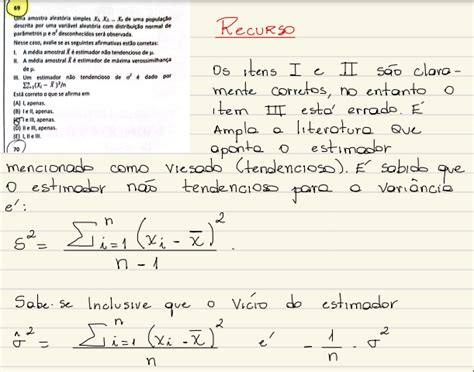 69
Uma amostra aleatória simples X₁, X₂ ... Xₙ de uma população
descrita por uma variável aleatória com distribuição normal de
parâmetros μ e σ² desconhecidos será observada.
Nesse caso, avalie se as seguintes afirmativas estão corretas:
I. A média amostral X̄ é estimador não tendencioso de μ.
II. A média amostral X̄ é estimador de máxima verossimilhança
de μ.
III. Um estimador não tendencioso de σ² é dado por
∑ⁿᵢ₌₁(Xᵢ − X̄)²/n
Está correto o que se afirma em
(A) I, apenas.
(B) I e II, apenas.
I e III, apenas.
(D) II e III, apenas.
(E) I, II e III.
70
RECURSO
Os itens I e II são clara-
mente corretos, no entanto o
item III está errado. É
Ampla a literatura que
aponta o estimador
mencionado como viesado (tendencioso). É sabido que
o estimador não tendencioso para a variância
é:
S² = ∑ⁿᵢ₌₁ (xᵢ - x̄)² / n - 1 .
Sabe-se Inclusive que o Vício do estimador
σ̂² = ∑ⁿᵢ₌₁ (xᵢ - x̄)² / n é - 1/n . σ²